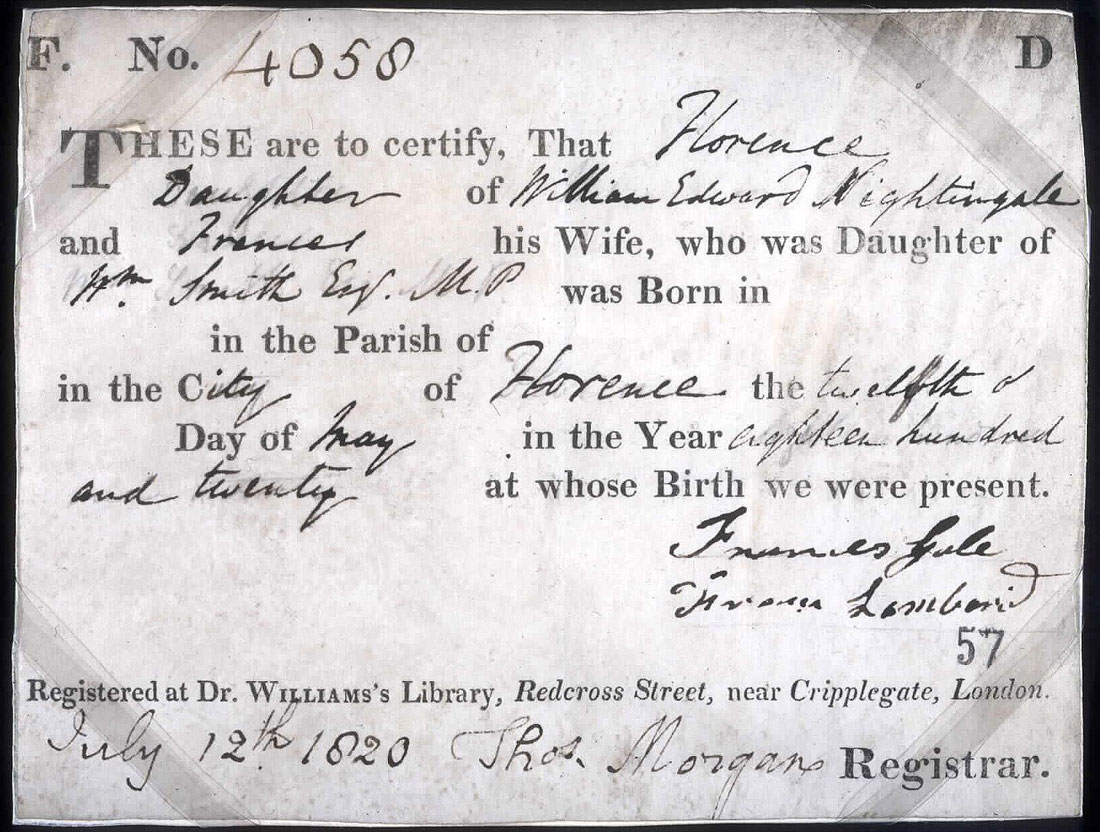 F. No. 4058 D
THESE are to certify, That Florence
Daughter of William Edward Nightingale
and Frances his Wife, who was Daughter of
Wm. Smith Esq. M.P was Born in
in the Parish of
in the City of Florence the twelfth
Day of May in the Year eighteen hundred
and twenty at whose Birth we were present.
Frances Gale
Lombard
57
Registered at Dr. WILLIAMS's Library, Redcross Street, near Cripplegate, London.
July 12th 1820 Thos. Morgan Registrar.